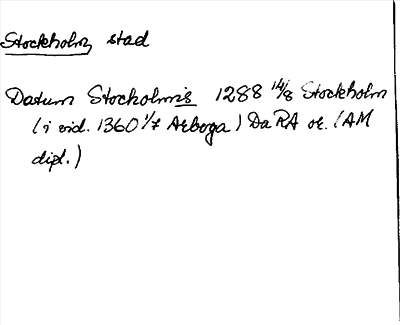 Stockholm stad
Datum Stocholmis 1288 14/8 Stockholm
(i vid. 1360 1/7 Arboga) Da RA or. (AM
dipl.)